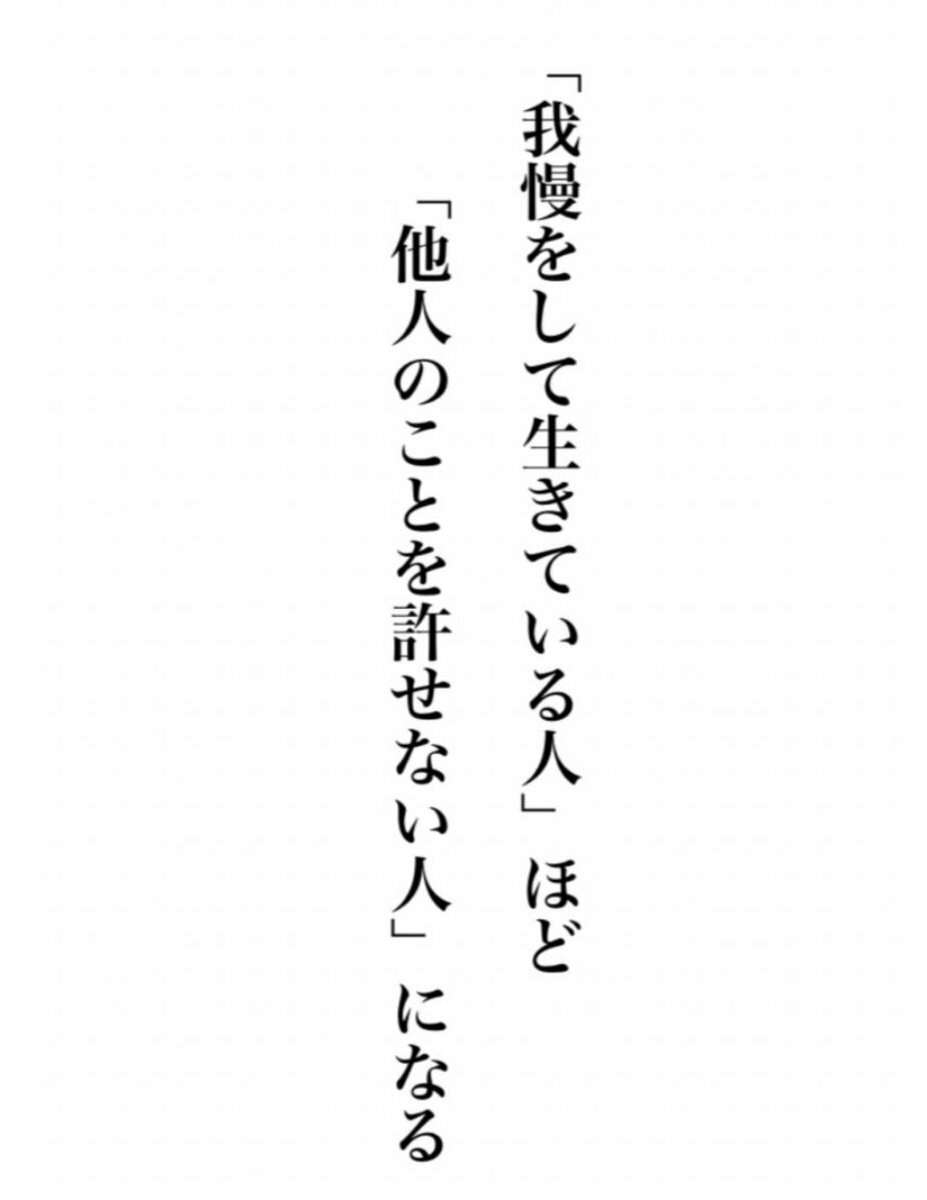 「我慢をして生きている人」ほど
「他人のことを許せない人」になる